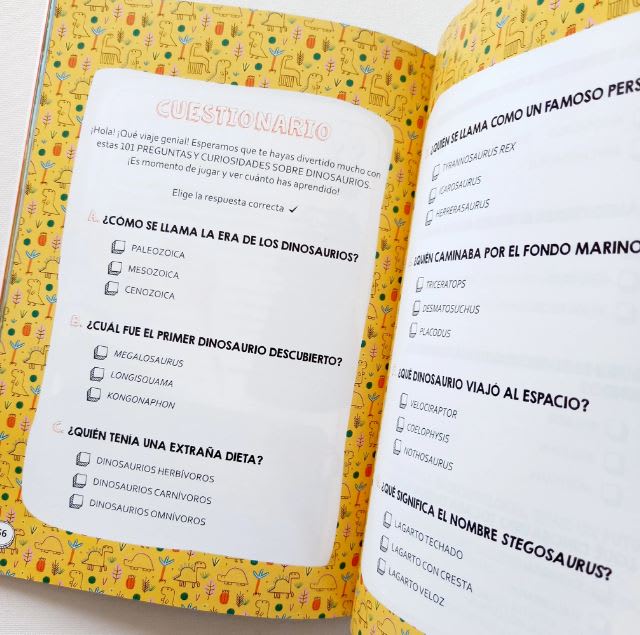 CUESTIONARIO
¡Hola! ¡Qué viaje genial! Esperamos que te hayas divertido mucho con
estas 101 PREGUNTAS Y CURIOSIDADES SOBRE DINOSAURIOS.
¡Es momento de jugar y ver cuánto has aprendido!
Elige la respuesta correcta ✓
A. ¿CÓMO SE LLAMA LA ERA DE LOS DINOSAURIOS?
PALEOZOICA
MESOZOICA
CENOZOICA
B. ¿CUÁL FUE EL PRIMER DINOSAURIO DESCUBIERTO?
MEGALOSAURUS
LONGISQUAMA
KONGONAPHON
C. ¿QUIÉN TENÍA UNA EXTRAÑA DIETA?
DINOSAURIOS HERBÍVOROS
DINOSAURIOS CARNÍVOROS
DINOSAURIOS OMNÍVOROS
¿QUIÉN SE LLAMA COMO UN FAMOSO
TYRANNOSAURUS REX
ICAROSAURUS
HERRERASAURUS
¿QUIÉN CAMINABA POR EL FONDO MARINO
TRICERATOPS
DESMATOSUCHUS
PLACODUS
¿QUÉ DINOSAURIO VIAJÓ AL ESPACIO?
VELOCIRAPTOR
COELOPHYSIS
NOTHOSAURUS
¿QUÉ SIGNIFICA EL NOMBRE STEGOSAURUS?
LAGARTO TECHADO
LAGARTO CON CRESTA
LAGARTO VELOZ